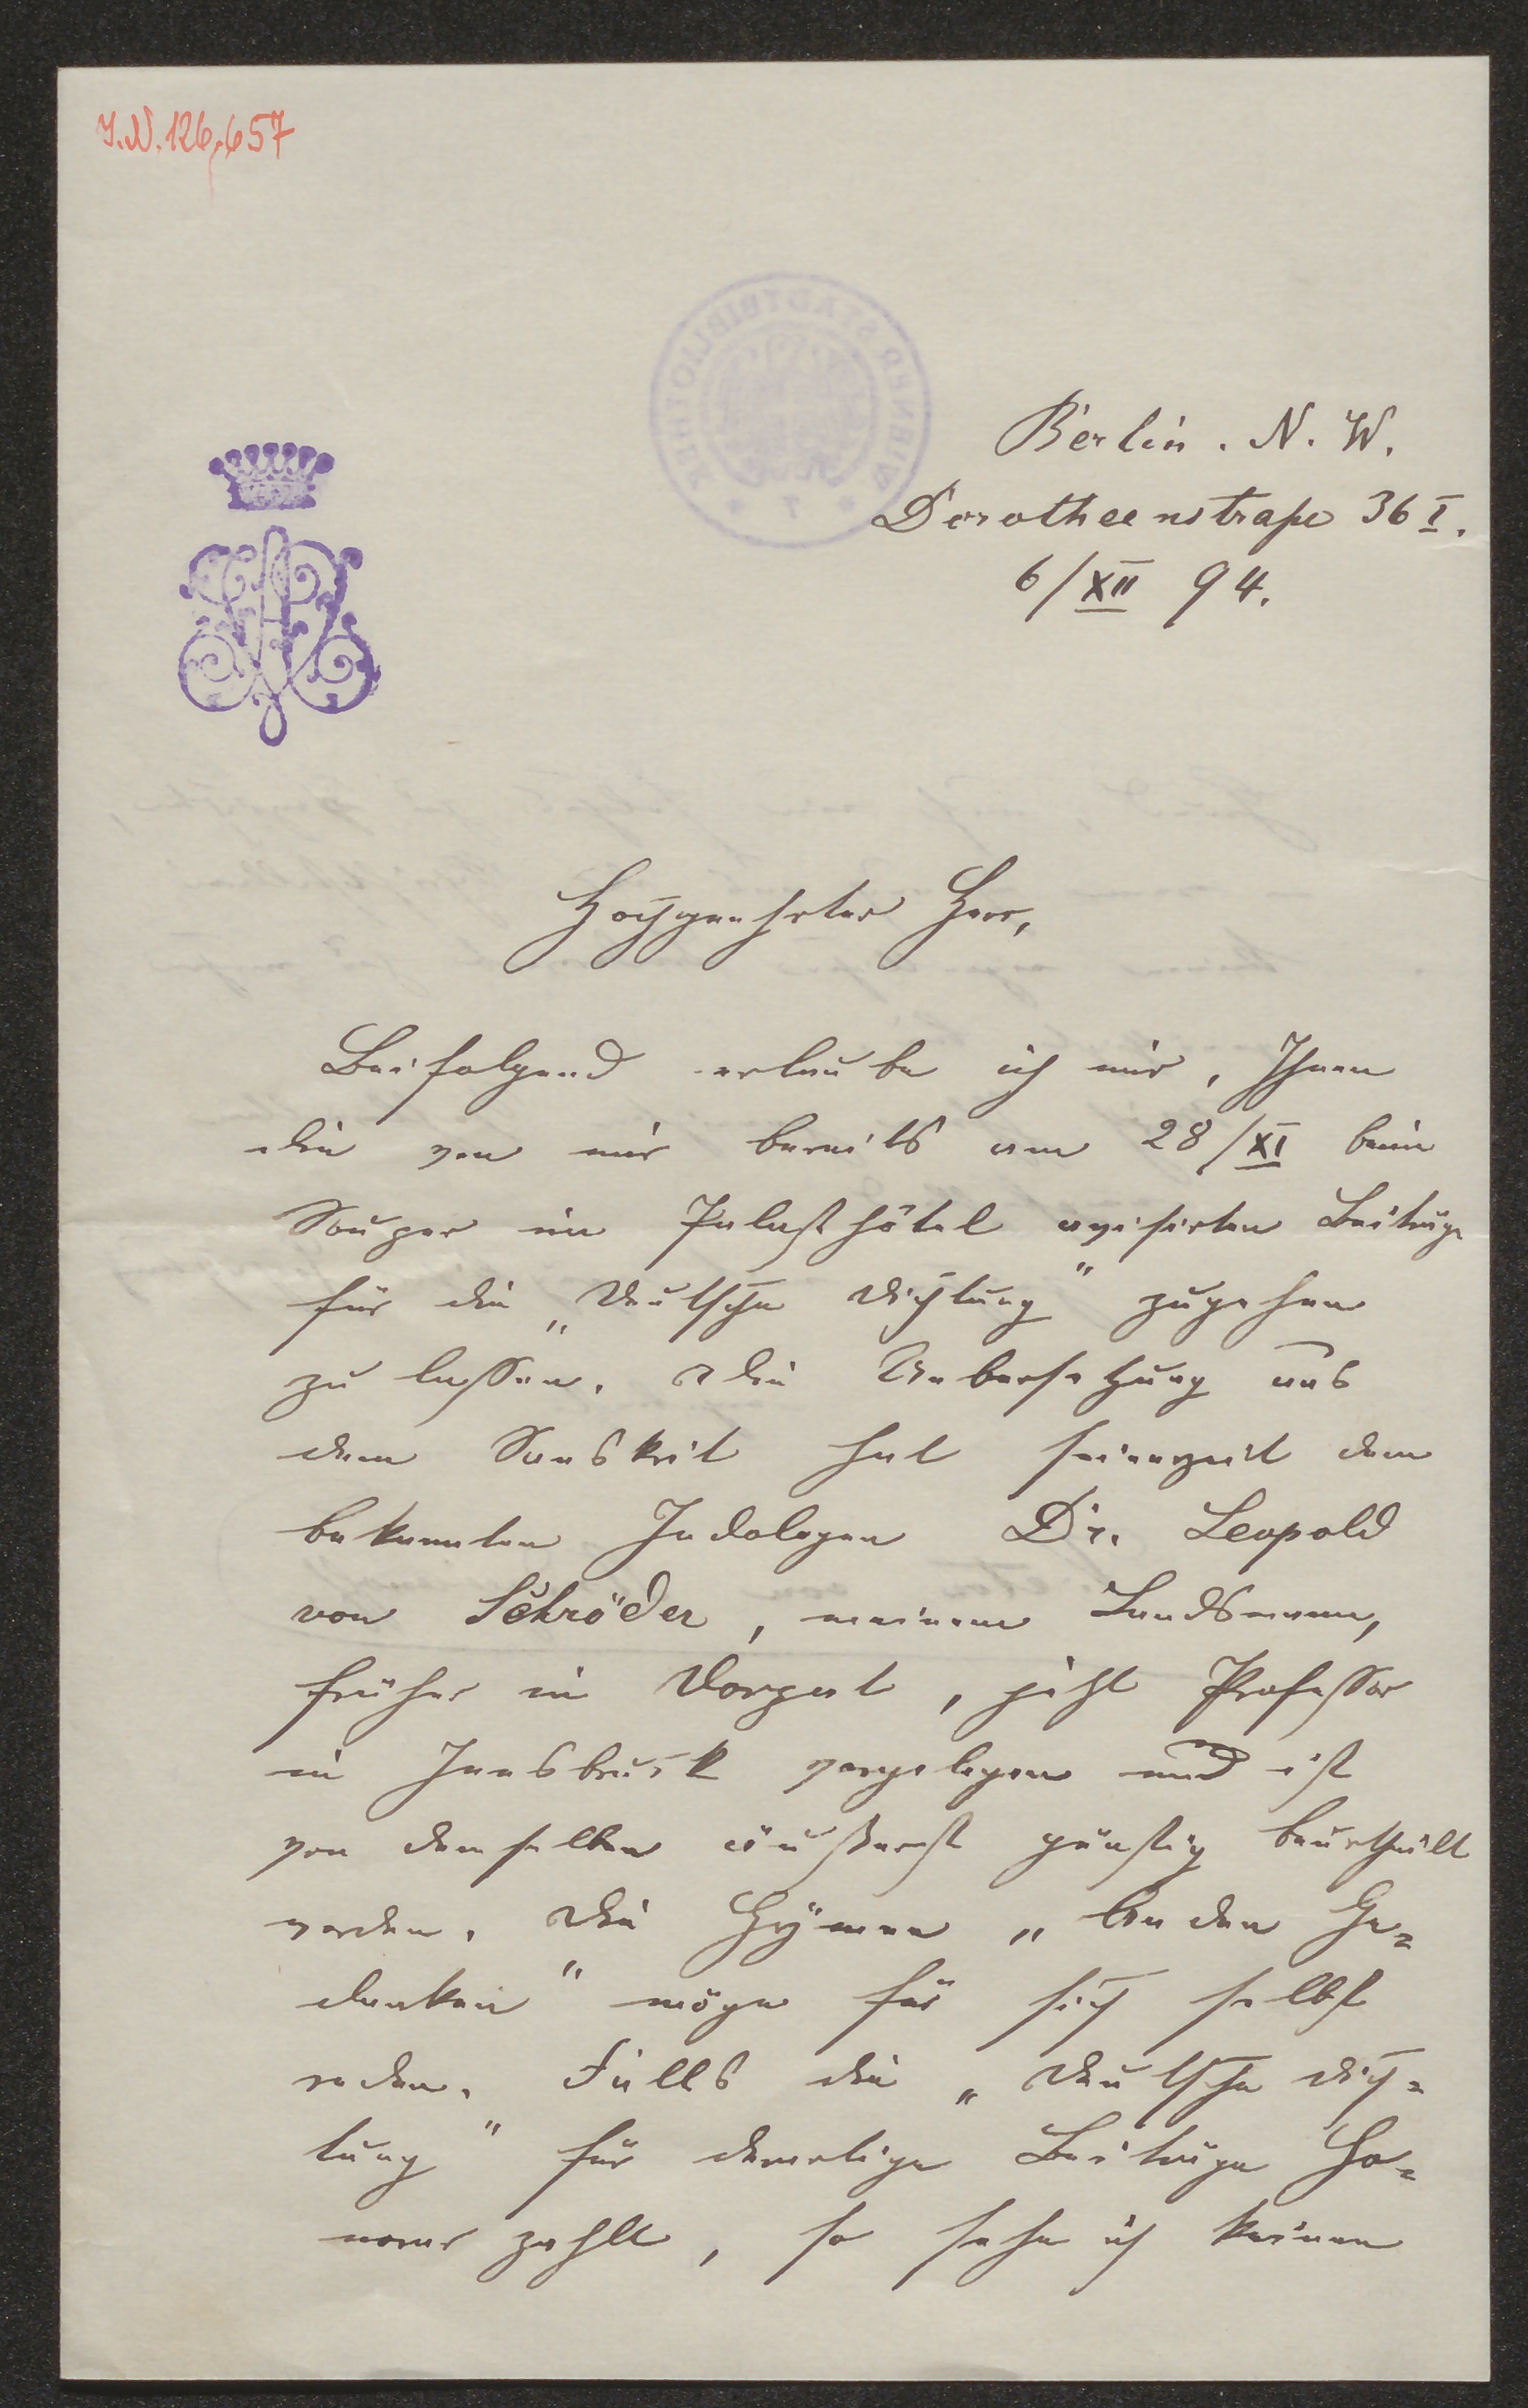 J.N. 126,657
Berlin. N. W.
Dorotheenstraße 36 I.
6/XII 94.
Hochgeehrter Herr,
Beifolgend erlaube ich mir, Ihnen
die von mir bereits am 28/XI beim
Souper im Palasthôtel avisirten Beiträge
für die „Deutsche Dichtung" zugehen
zu lassen. Die Uebersetzung aus
dem Sanskrit hat seinerzeit dem
bekannten Indologen Dr. Leopold
von Schröder, meinem Landsmann,
früher in Dorpat, jetzt Professor
in Innsbruck vorgelegen und ist
von demselben äußerst günstig beurtheilt
worden. Die Hymne „An den Ge=
danken" möge für sich selbst
reden. Falls die „Deutsche Dich=
tung" für derartige Beiträge Ho=
norar zahlt, so sehe ich keinen